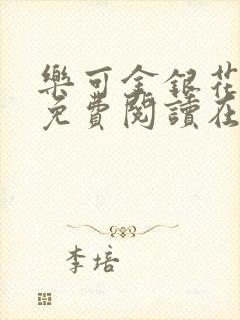 樂可金銀花
免費閱讀在
李培